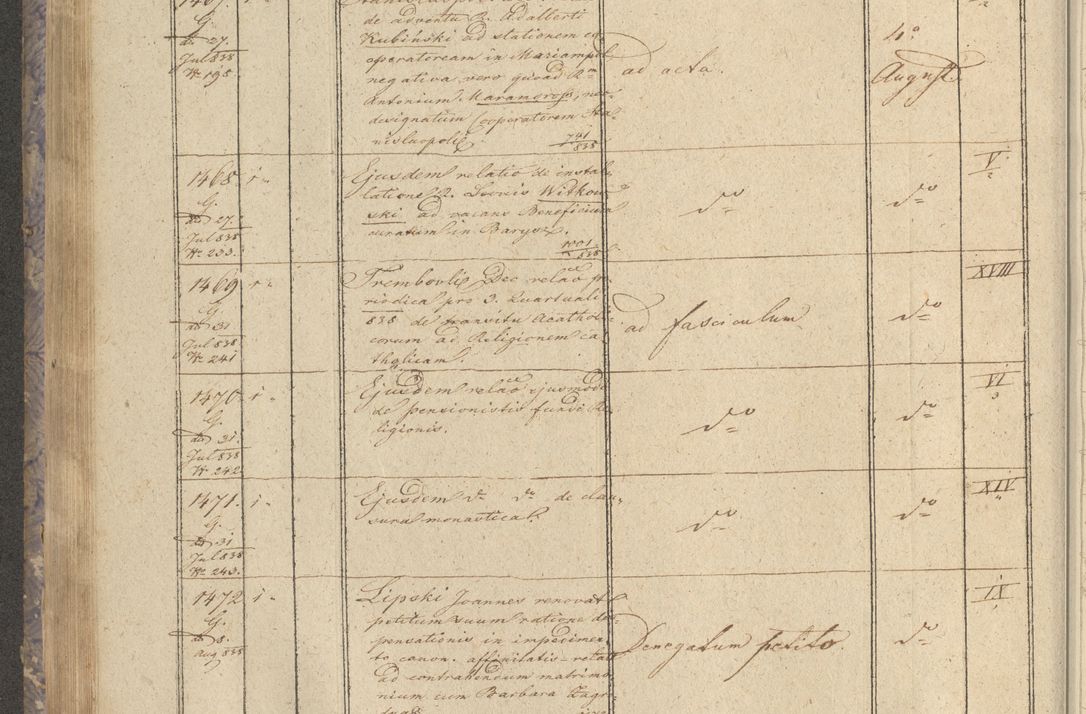 de adventu R. Adalberti
Kubiński ad stationem co
operatoream in Mariampol
negativa vero quoad Rm
Antonium Maramoross, neo
designatum Cooperatorem Sta
nislaopoli.
741
838
G.
dd 27
Jul 838
Nr 195
ad acta.
4a
August
1468. 1 "
G.
dd 27
Jul 838
Nr 233.
Ejusdem relatio de instal
latione R. Ludovis Witkow
ski ad vacans Beneficium
curatum in Barysz.
1001
838
do
do
V
2
1469 1 "
G.
dd 31
Jul 838
Nr 241
Trembovls Dec relao pe
riodica pro 3. Quartuali
838 de transitu Acatholi
corum ad Religionem ca
tholicam.
ad fasciculum
do
XVIII
1470 1 "
G.
dd 31.
Jul 838
Nr 242
Ejusdem relao ejusmodi
de pensionistis fundi Re
ligionis.
do
do
VI
3
1471. 1 "
G.
dd 31
Jul 838
Nr 243.
Ejusdem do do de clau
sura monastical.
do
do
XIV
1472 1 "
G.
dd 8.
Aug 838
Lipski Joannes renovat
petitum suum ratione dis
pensationis in impedimen
to canon. affinitatis relate
ad contrahendum matrimo
nium cum Barbara Zagro
Denegatum petito.
do
IX